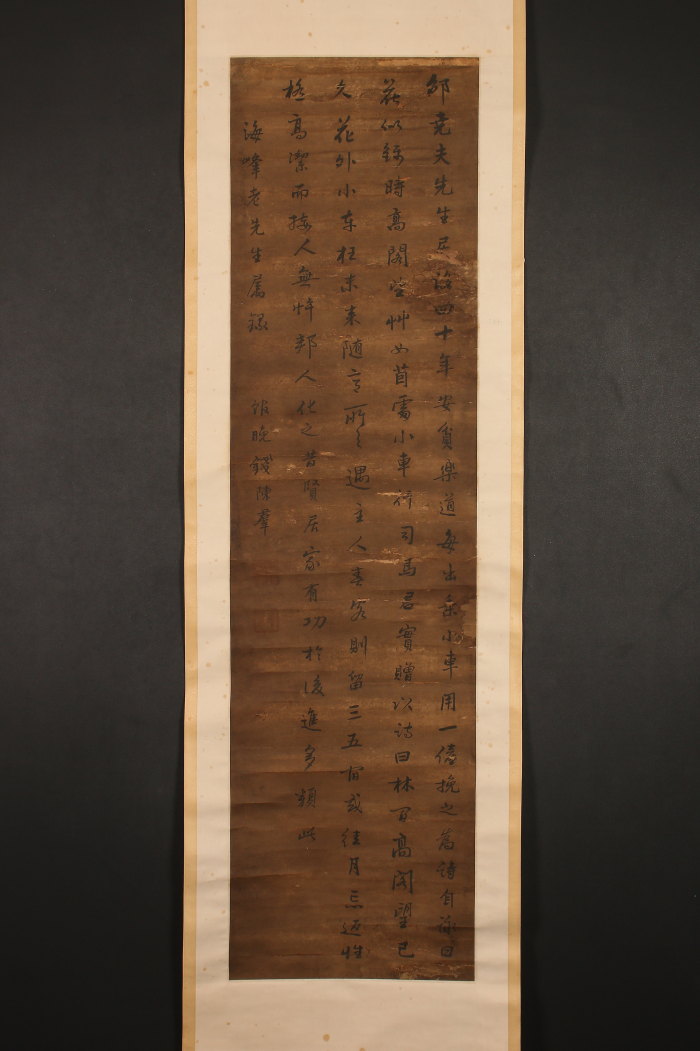 邵堯夫先生居洛四十年安貧樂道每出乘小車用一僮挽之為詩自詠曰
花似錦時高閣望艸如茵處小車行司馬君實贈以詩曰林間高閣望已
久花外小車猶未來隨意所之遇主人喜客則留三五宿或經月忘返性
極高潔而接人無忤鄰人化之昔賢居家有功於後進多類此
海峰老先生屬錄
飯晚錢陳羣